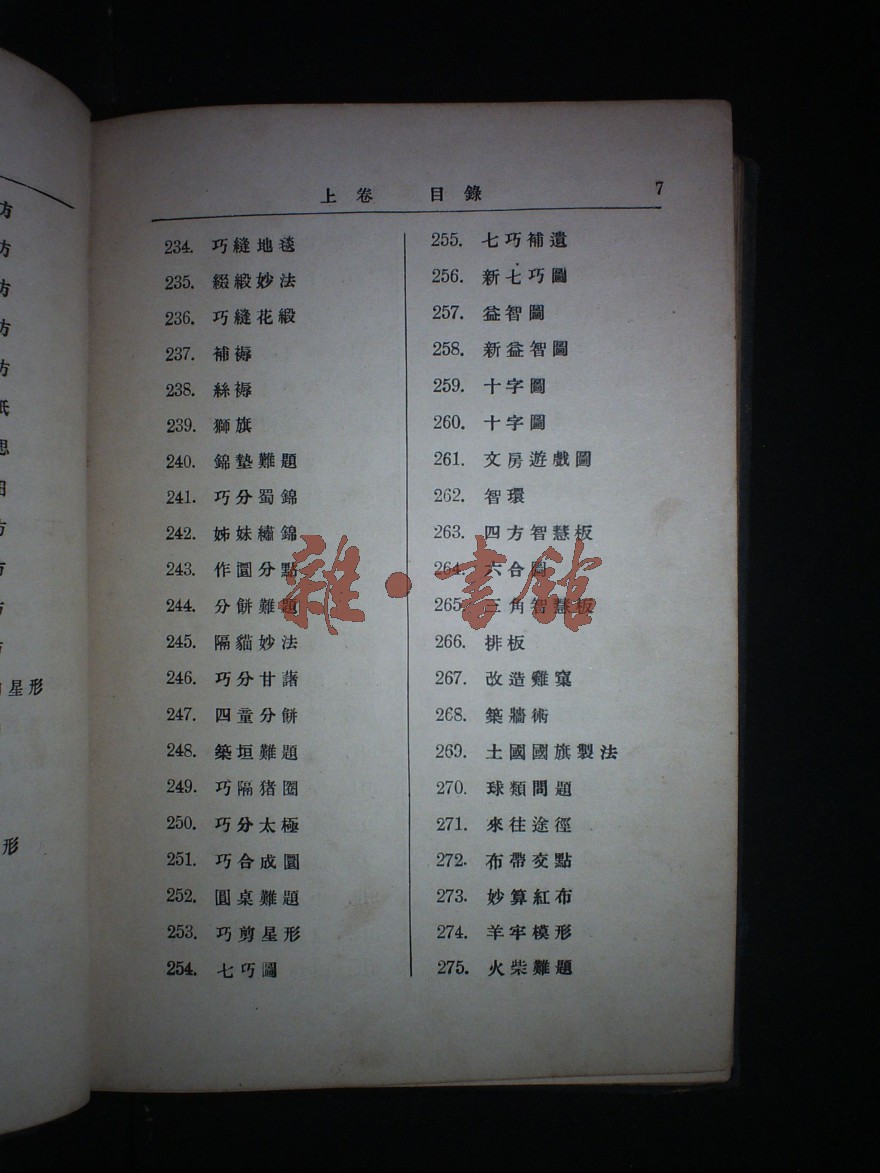 方
方
方
方
方
紙
思
田
方
方
方
星形
形
上卷 目錄 7
234. 巧縫地毯
235. 綴緞妙法
236. 巧縫花緞
237. 補褥
238. 絲褥
239. 獅旗
240. 錦墊難題
241. 巧分蜀錦
242. 姊妹繡錦
243. 作圜分點
244. 分餅難題
245. 隔貓妙法
246. 巧分甘藷
247. 四童分餅
248. 築垣難題
249. 巧隔猪圈
250. 巧分太極
251. 巧合成圜
252. 圓桌難題
253. 巧剪星形
254. 七巧圖
255. 七巧補遺
256. 新七巧圖
257. 益智圖
258. 新益智圖
259. 十字圖
260. 十字圖
261. 文房遊戲圖
262. 智環
263. 四方智慧板
264. 六合圖
265. 三角智慧板
266. 排板
267. 改造雞窠
268. 築牆術
269. 土國國旗製法
270. 球類問題
271. 來往途徑
272. 布帶交點
273. 妙算紅布
274. 羊牢模形
275. 火柴難題
雜·書館